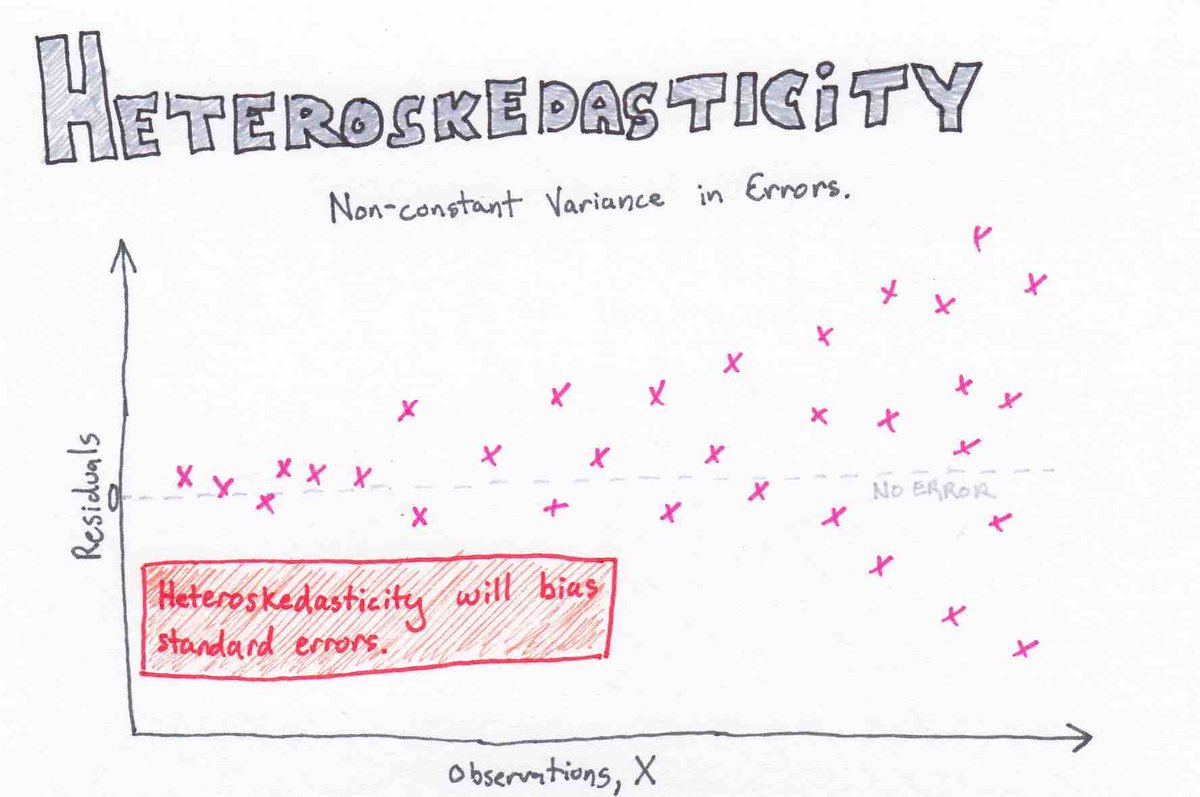 HETEROSKEDASTICITY
Non-constant Variance in Errors.
Residuals
0
NO ERROR
Heteroskedasticity will bias
standard errors.
Observations, X